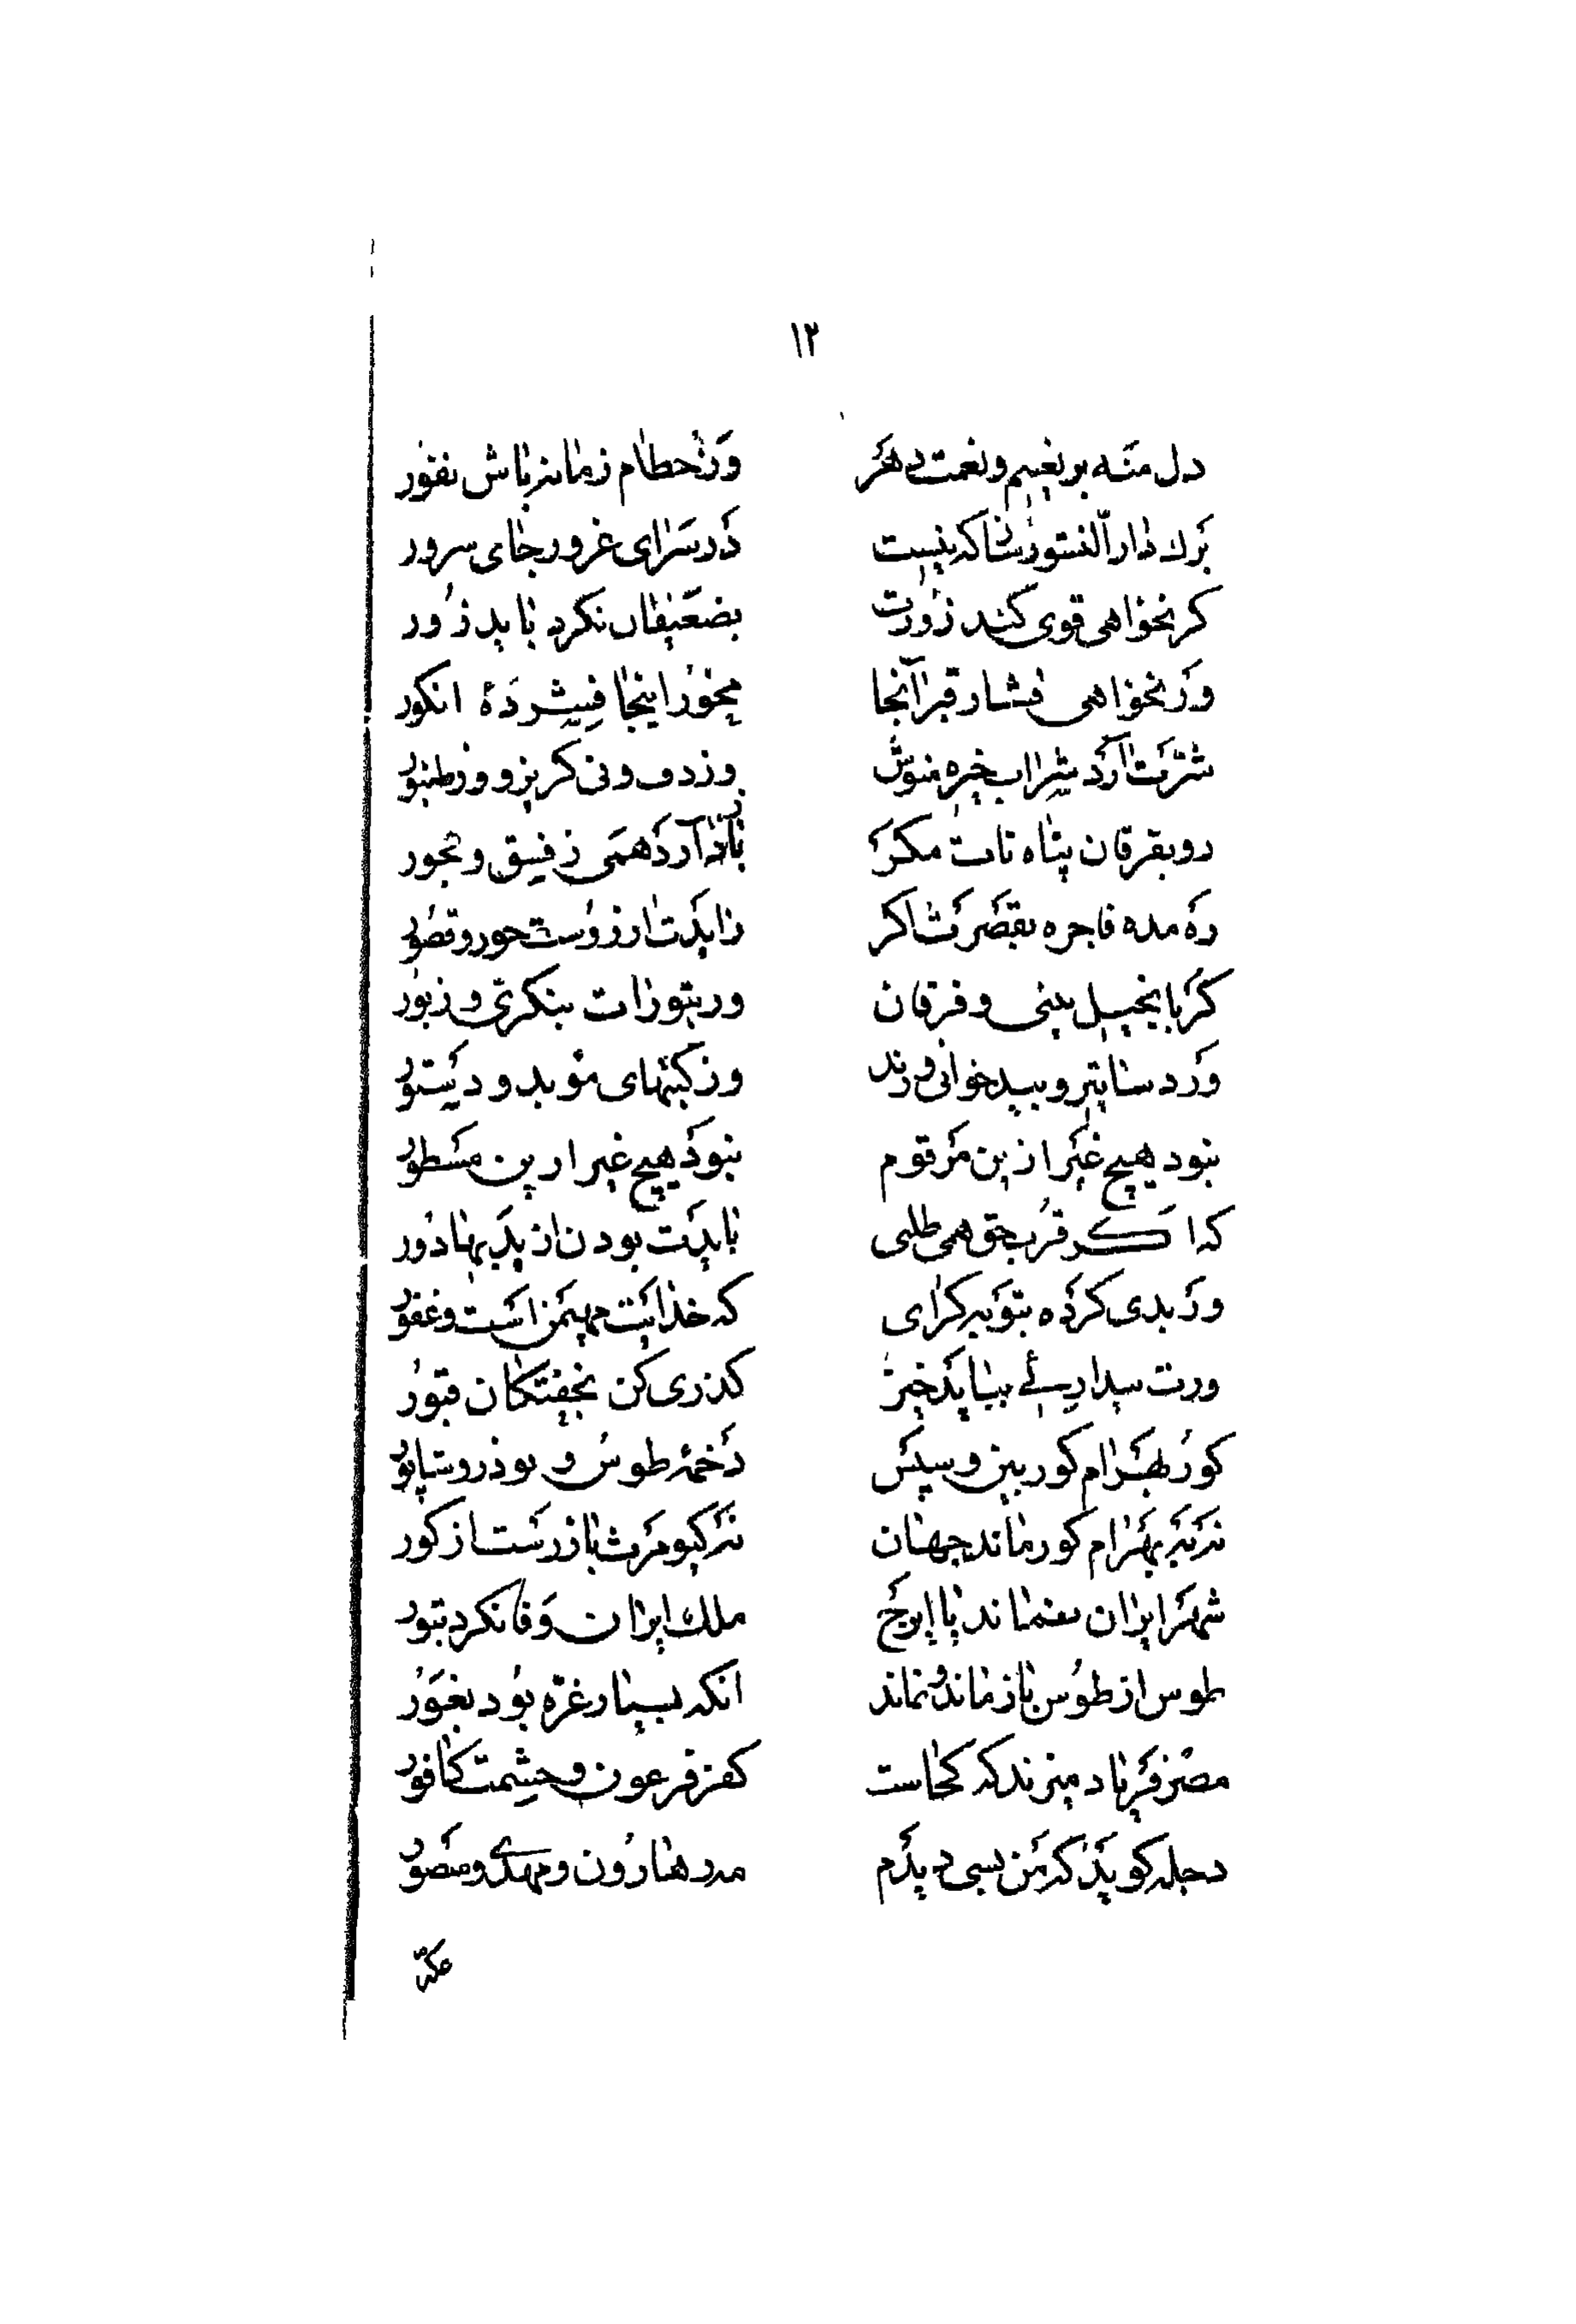 ١٢
دل منه بر نعیم و نعمت دهر وز حطام زمانه باش نفور
که در سرای غرور جای سرور
کر نخواهی قوی کند زورت بضعیفان نکرد باید زور
ور نخواهی فشار قبر آنجا مخور اینجا فشردۀ انکور
شرّت آرد شراب خیره منوش وز دف و نی کریز و وز طنبور
رو بفرقان پناه تات مکر باز آرد همی ز فسق و فجور
ره مده فاجره بقصرت اکر زایدت ارزوست حور و قصور
کر بانجیل بینی و فرقان ور بتورات بنکری و زبور
ور دساتیر و بید خوانی و زند وز کتبهای موبد و دستور
نبود هیچ غیر ازین مرقوم نبود هیچ غیر ازین مسطور
که اکر قرب حق همی طلبی بایدت بودن از بدیها دور
ور بدی کرده بتوبه کرای که خدایت مهیمن است و غفور
ورت بیداریئے بباید خیز کذری کن بخفتکان قبور
کور بهرام کور بین و سپس دخمۀ طوس و نوذر و شاپور
نه به بهرام کور ماند جهان نه کیومرث باز رست از کور
شهر ایران نماند با ایرج ملك ایران وفا نکرد بتور
طوس از طوس باز ماند و نماند انکه بسیار غرّه بود بغور
مصر فریاد میزند که کجاست کفر فرعون و حشمت کافور
دجله کوید که من بسی دیدم مرد هارون و مهدی و منصور
عکه